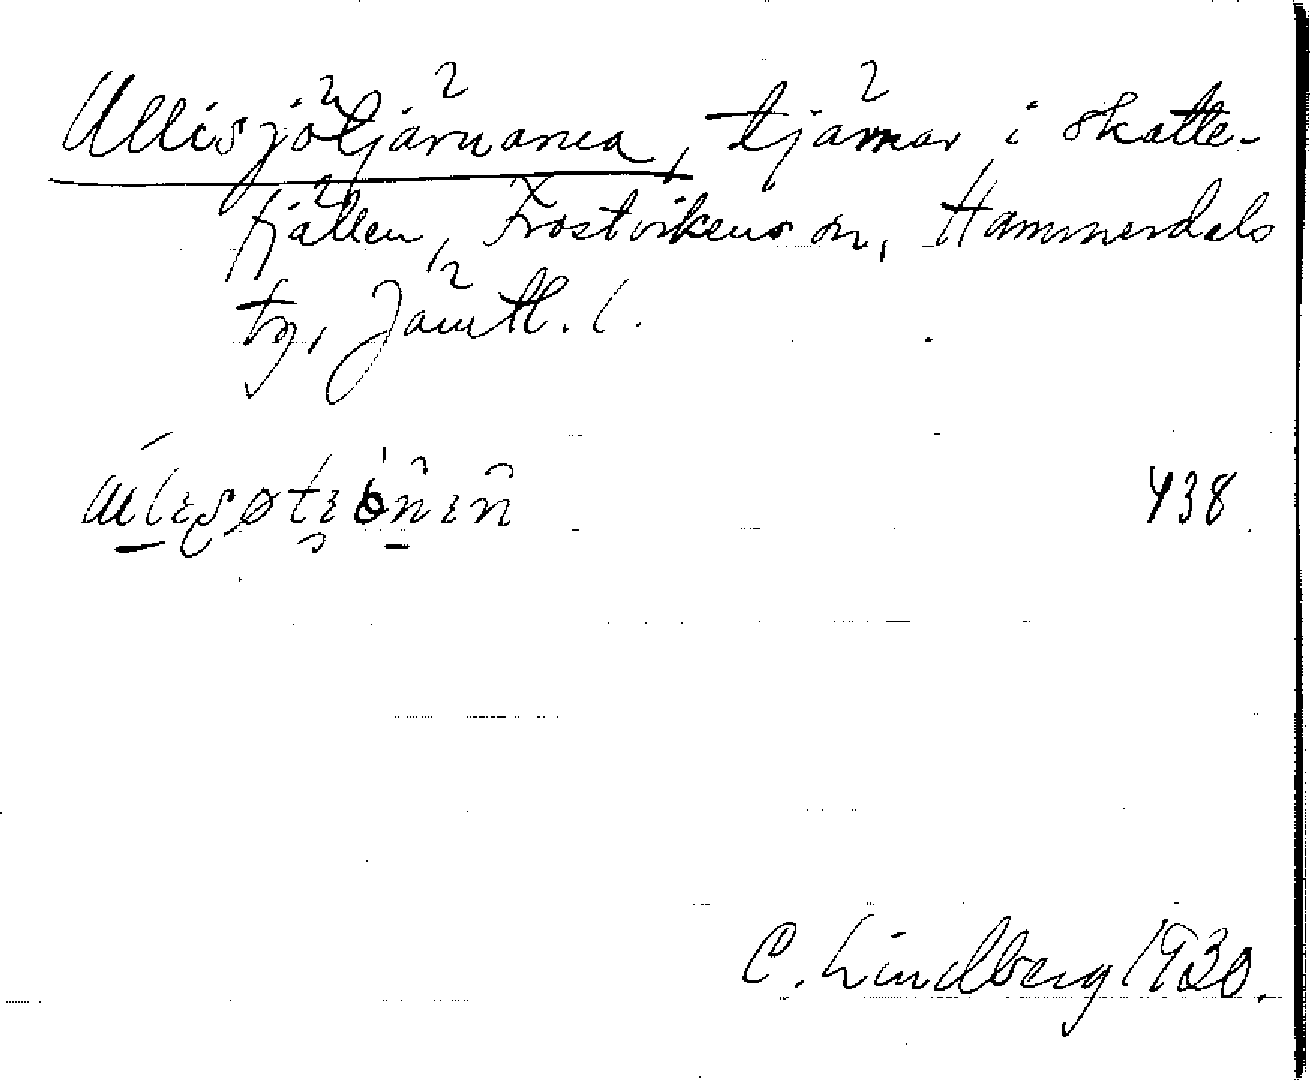 Ullisjötjärnarna, tjärnar i skatte-
fjällen, Frostvikens sn, Hammerdals
tg, Jämtl. l.
438
C. Lindberg 1930.